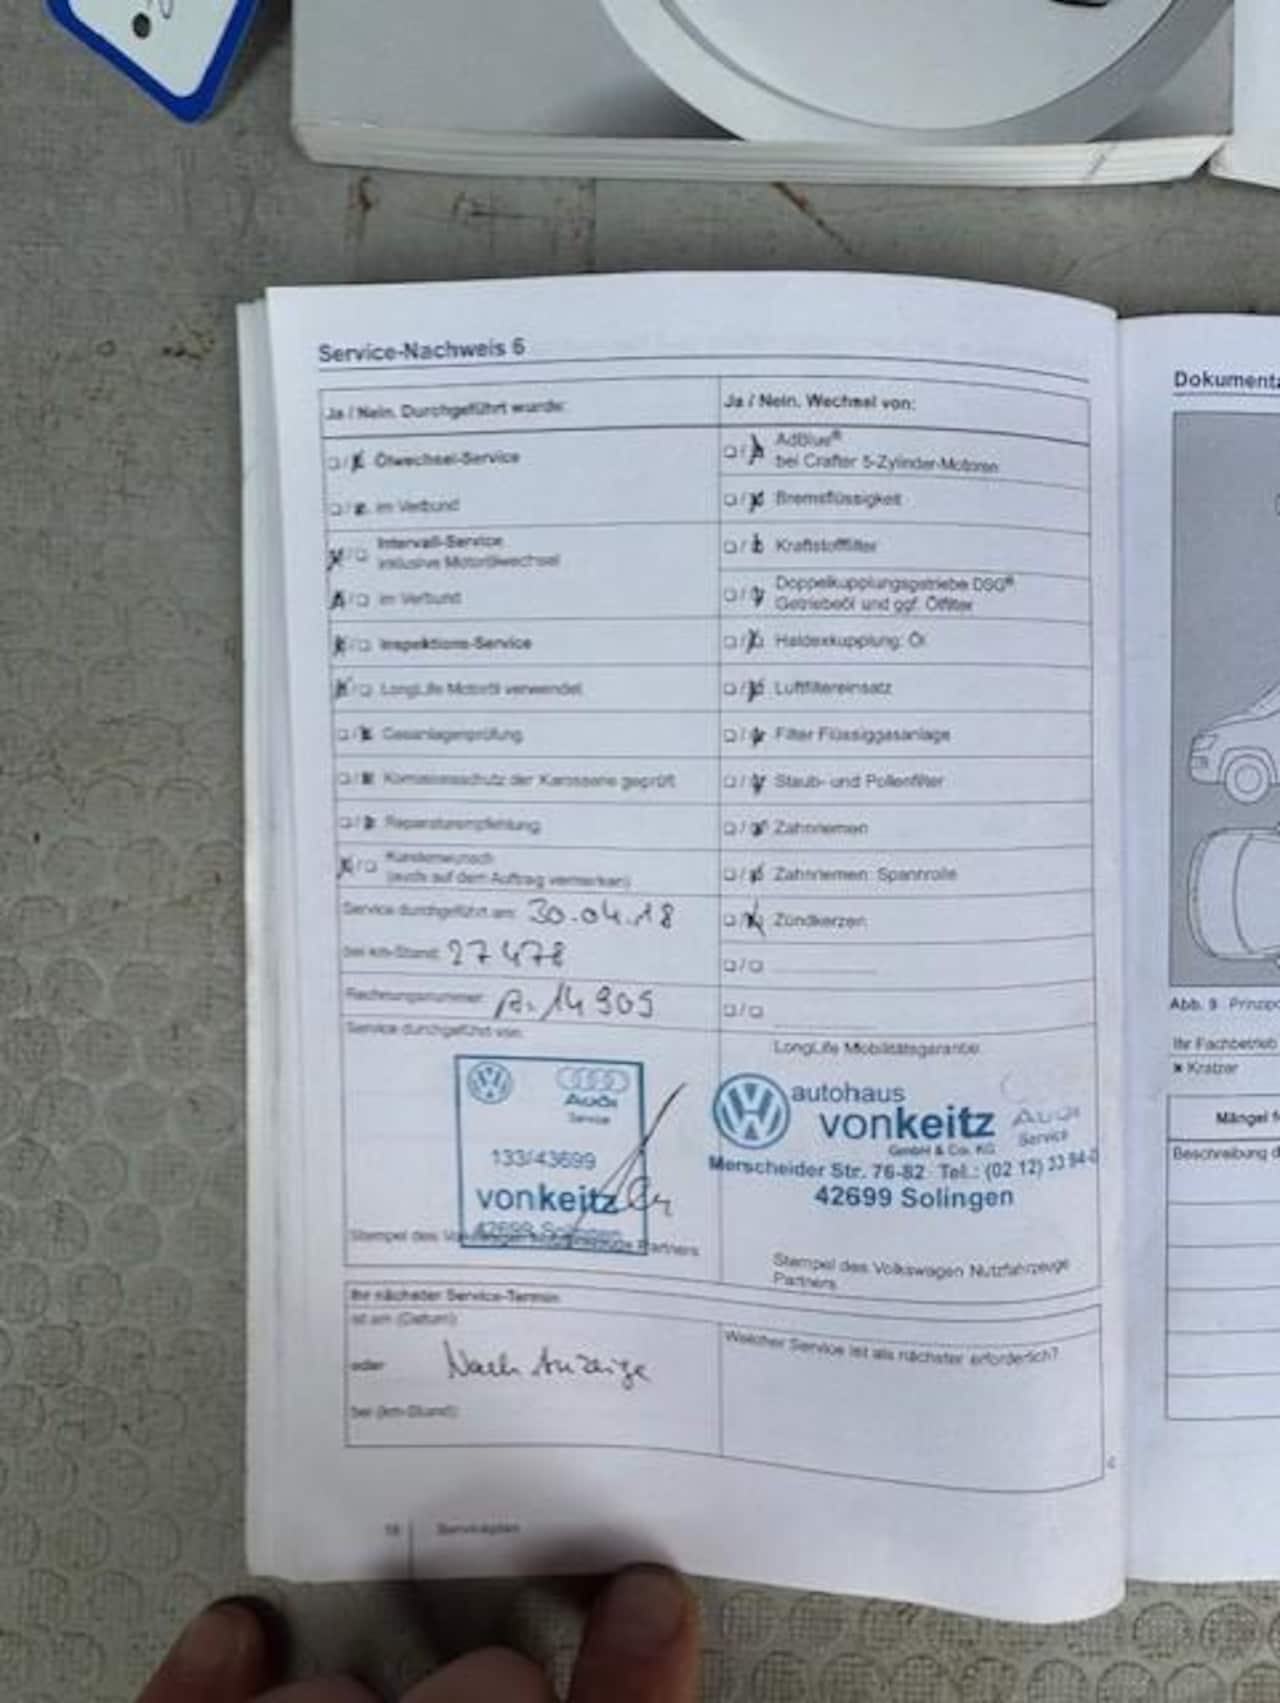 Service-Nachweis 6
Ja / Nein. Durchgeführt wurde:
Ölwechsel-Service
im Verbund
Intervall-Service
inklusive Motorölwechsel
im Verbund
Inspektions-Service
LongLife Motoröl verwendet
Gasanlagenprüfung
Korrosionsschutz der Karosserie geprüft
Reparaturempfehlung
Kundenwunsch
(auch auf dem Auftrag vermerken)
Service durchgeführt am: 30.04.18
bei km-Stand: 27478
Rechnungsnummer: A. 14905
Service durchgeführt von:
Audi
Service
133/43699
vonkeitz
42699 Solingen
Stempel des Volkswagen Nutzfahrzeuge Partners
Ja / Nein. Wechsel von:
AdBlue®
bei Crafter 5-Zylinder-Motoren
Bremsflüssigkeit
Kraftstofffilter
Doppelkupplungsgetriebe DSG®
Getriebeöl und ggf. Ölfilter
Haldexkupplung: Öl
Luftfiltereinsatz
Filter Flüssiggasanlage
Staub- und Pollenfilter
Zahnriemen
Zahnriemen: Spannrolle
Zündkerzen
LongLife Mobilitätsgarantie
autohaus
vonkeitz
GmbH & Co. KG
Audi
Service
Merscheider Str. 76-82 Tel.: (02 12) 33 94-0
42699 Solingen
Stempel des Volkswagen Nutzfahrzeuge
Partners
Ihr nächster Service-Termin
ist am (Datum):
oder Nach Anzeige
bei (km-Stand):
Welcher Service ist als nächster erforderlich?
18 Serviceplan
Dokumenta
Abb. 9 Prinzip
Ihr Fachbetrieb
× Kratzer
Mängel f
Beschreibung d